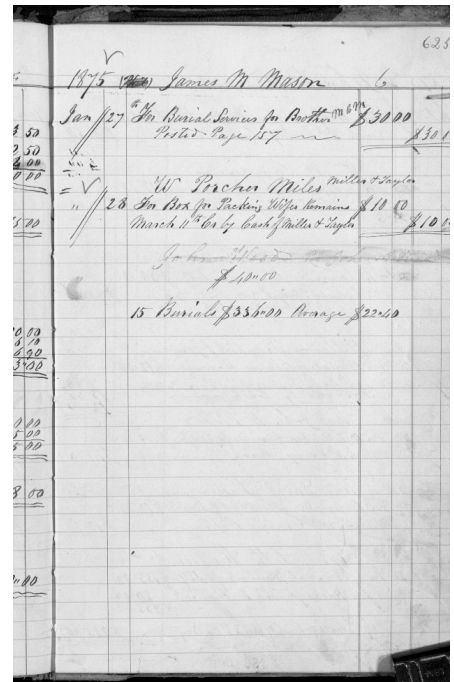 625
1875 James M Mason 6
Jan 27th For Burial Services for Brother M & M $30 00
Posted Page 157 $30 0
W Porcher Miles Miller & Taylor
" 28 For Box for Packing Wifes Remains $10 00
March 11th Cr by Cash of Miller & Taylor $10 0
John Wood
$40"00
15 Burials $336"00 Average $22"40
3 50
2 50
6 00
0 00
5 00
0 00
6 10
6 90
3"00
0 00
5 00
5 00
8 00
"00